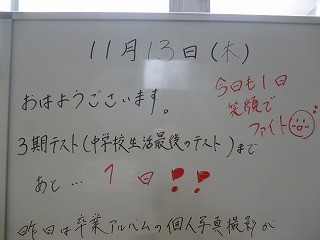 11月13日(木)
おはようございます。
今日も1日
笑顔で
ファイト
3期テスト(中学校生活最後のテスト)まで
あと… 1日!!
昨日は卒業アルバムの個人写真撮影が